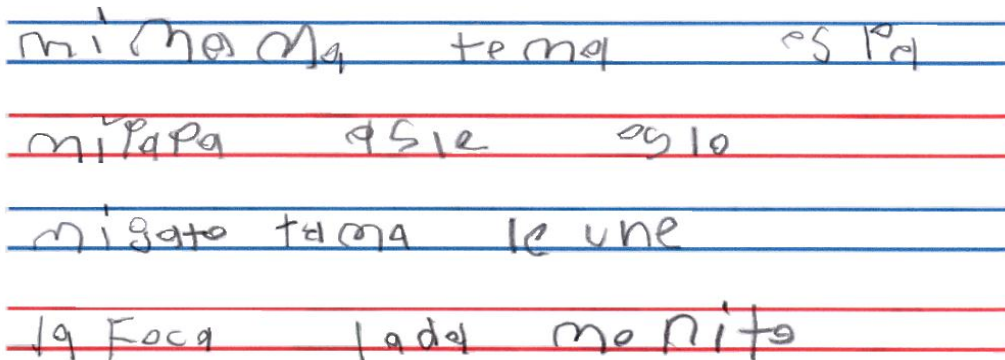 mi mama tema espa
mi papa asle oslo
mi gato tama le une
la Foca lada monito